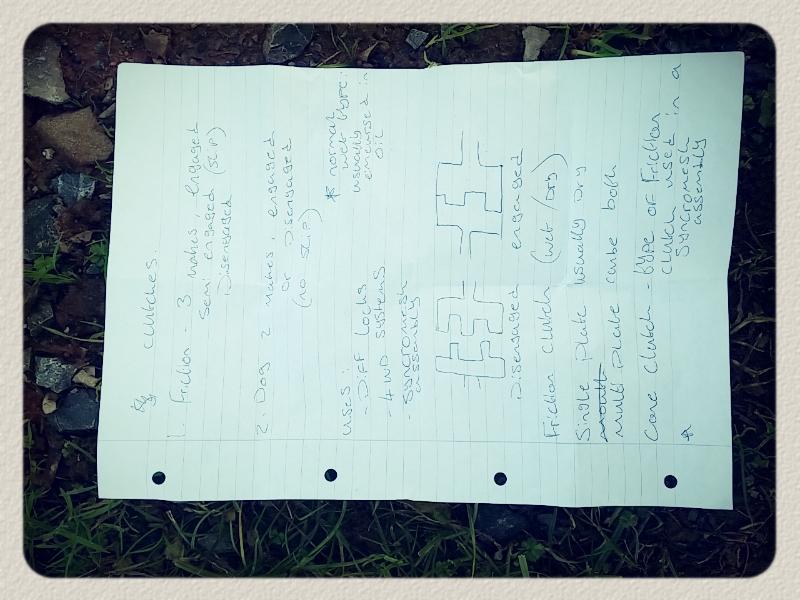 Clutches.
1. Friction - 3 states, engaged
semi engaged (slip)
Disengaged
2. Dog 2 states, engaged
or Disengaged
(no slip)
uses:
- Diff locks
- 4WD systems
- syncromesh
assembly
* normal
wet type:
usually
emersed in
oil
Disengaged engaged
Friction clutch (wet / Dry)
Single plate usually Dry
multi plate canbe both
Cone clutch - type of Friction
clutch used in a
* syncromesh
assembly